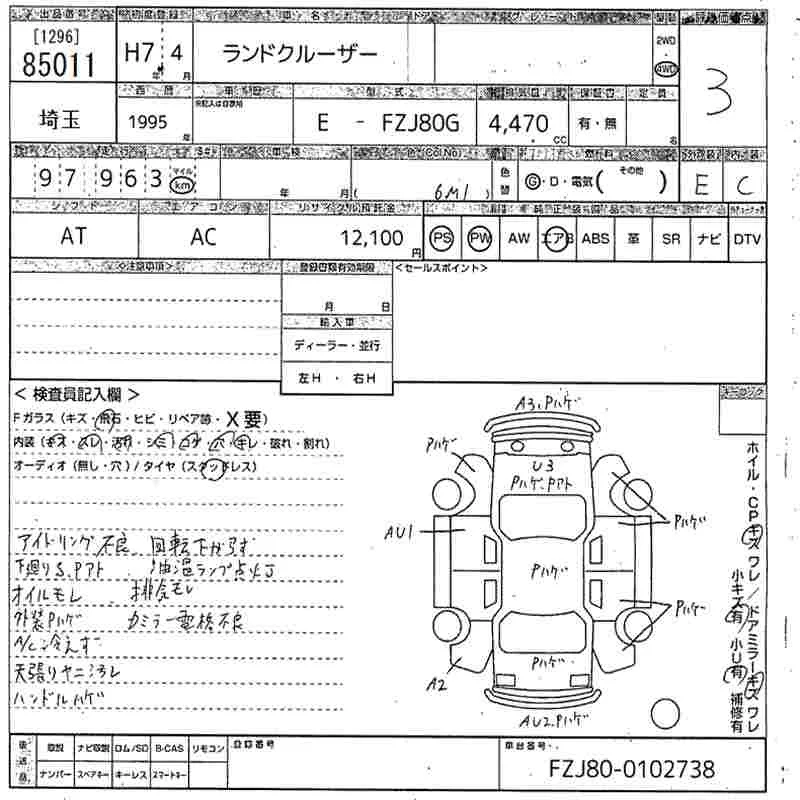 出品番号 初度登録 車名 ドア グレード 駆動 評価点
[1296]
85011 H7年 4月 ランドクルーザー 2WD・4WD 3
西暦 車歴 型式 排気量 保証書 定員
埼玉 1995年 E - FZJ80G 4,470cc 有・無 名
車検 色替 燃料 外装 内装
97 963 マイル km 年 月 ( 6M1 ) G・D・電気( その他 ) E C
シフト エアコン リサイクル預託金
AT AC 12,100円 PS PW AW エアB ABS 革 SR ナビ DTV
<注意事項> 登録書類有効期限 <セールスポイント>
月 日
輸入車
ディーラー・並行
左H・右H
<検査員記入欄> キーロック
Fガラス(キズ・飛石・ヒビ・リペア跡・X要)
内装(キズ・スレ・汚れ・シミ・コゲ・穴・キレ・破れ・割れ)
オーディオ(無し・穴)/タイヤ(スタッドレス)
アイドリング不良 回転下がらず
下廻りS.Pアト 油温ランプ点灯
オイルモレ 排気モレ
外装Pハゲ カミラー電格不良
A/C冷えず
天張りヤニヨゴレ
ハンドルハゲ
A3.Pハゲ
Pハゲ
U3
Pハゲ.Pアト
AU1
Pハゲ
Pハゲ
Pハゲ
Pハゲ
A2
AU2.Pハゲ
ホイル・CPキズワレ/ドアミラーキズワレ
小キズ有/小U有 補修有
後送品 取説 ナビ取説 ロム/SD B-CAS リモコン 登録番号 車台番号
ナンバー スペアキー キーレス スマートキー FZJ80-0102738